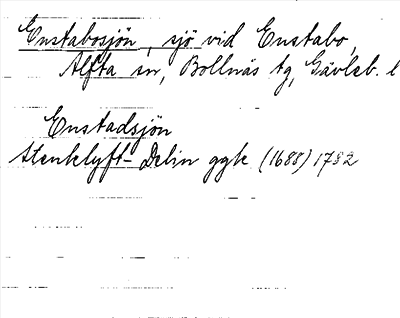 Enstabosjön, sjö vid Enstabo,
Alfta sn, Bollnäs tg, Gävleb. l
Enstadsjön
Stenklyft- Delin ggk (1688) 1782